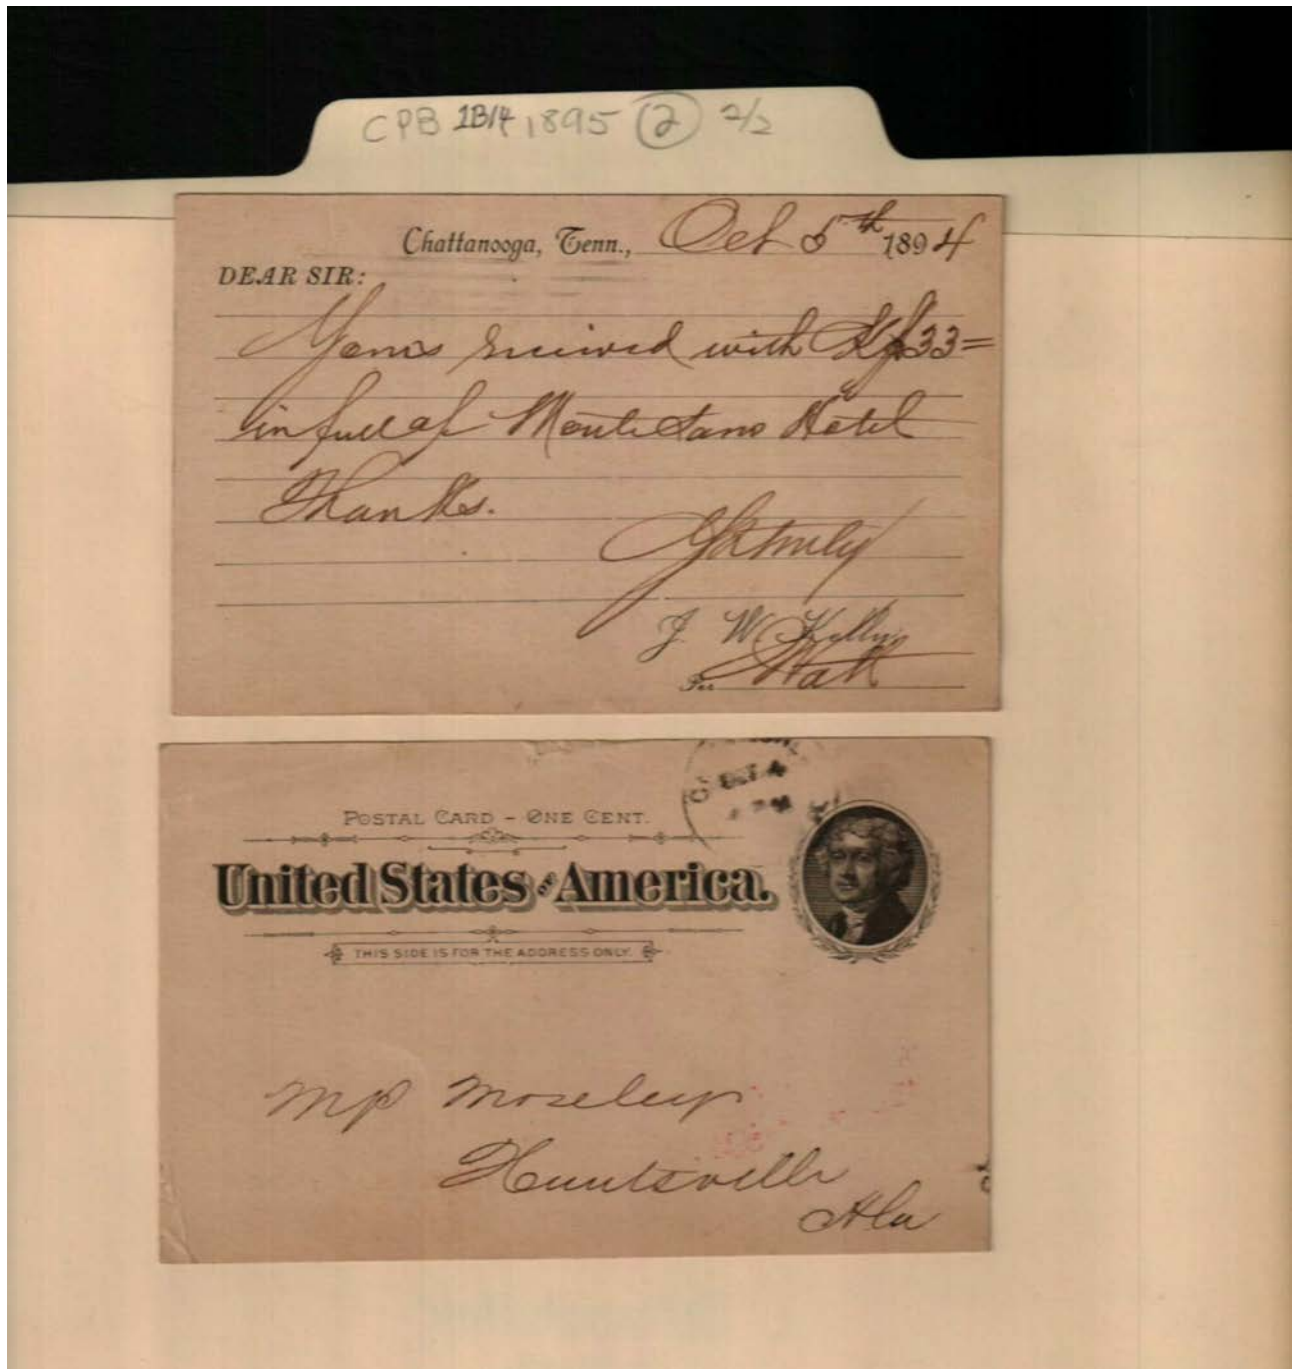 CPB 1B14 1895 (2) 2/2
Chattanooga, Tenn., Oct 5th 1894
DEAR SIR:
Yours received with 33=
in full of Monte Sano Hotel
Thanks.
Yrs truly
J. W. Kelly
Per
OCT 4
POSTAL CARD - ONE CENT.
United States of America.
THIS SIDE IS FOR THE ADDRESS ONLY.
MP Moseley
Huntsville
Ala